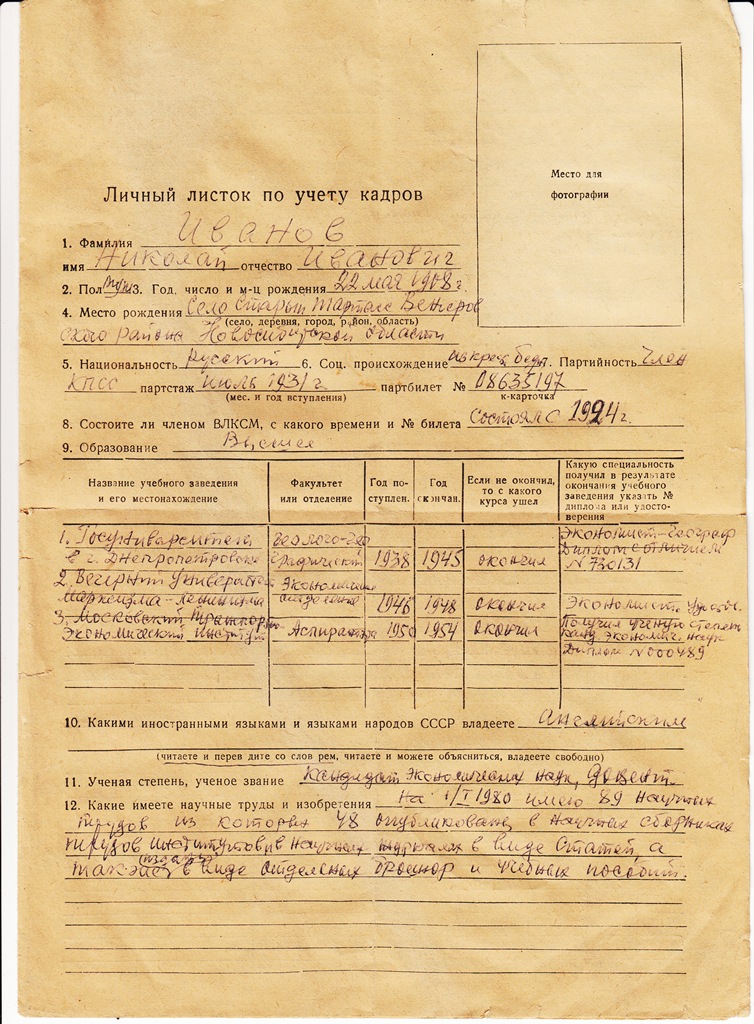 Место для
фотографии
Личный листок по учету кадров
1. Фамилия Иванов
имя Николай отчество Иванович
2. Пол муж 3. Год, число и м-ц рождения 22 мая 1908 г.
4. Место рождения Село Старый Тартасс Венгеров
(село, деревня, город, район, область)
ского района Новосибирской области
5. Национальность Русский 6. Соц. происхождение из крест. бедн. 7. Партийность Член
КПСС партстаж июль 1931 г партбилет № 08635197
(мес. и год вступления) к-карточка
8. Состоите ли членом ВЛКСМ, с какого времени и № билета Состоял с 1924 г.
9. Образование Высшее
Название учебного заведения и его местонахождение
Факультет или отделение
Год поступлен.
Год окончан.
Если не окончил, то с какого курса ушел
Какую специальность получил в результате окончания учебного заведения указать № диплома или удостоверения
1. Госуниверситет в г. Днепропетровске
Геолого-географический 1938 1945 окончил
Экономист-географ Диплом с отличием N 730131
2. Вечерний Университет Марксизма-Ленинизма
Экономическ. отделение 1946 1948 окончил
Экономист.
3. Московский Транспортно Экономический Институт
Аспирантура 1950 1954 окончил
Получил ученую степень канд. экономич. наук Диплом N 000489
10. Какими иностранными языками и языками народов СССР владеете Английским
(читаете и перев дите со слов рем, читаете и можете объясниться, владеете свободно)
11. Ученая степень, ученое звание Кандидат экономических наук, доцент
12. Какие имеете научные труды и изобретения На 1/I 1980 имею 89 научных
трудов из которых 48 опубликованы в научных сборниках
трудов институтов и в научных журналах в виде статей, а
также изданы в виде отдельных брошюр и учебных пособий.